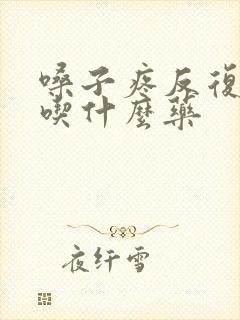 嗓子疼反復
喫什麼藥
夜纤雪